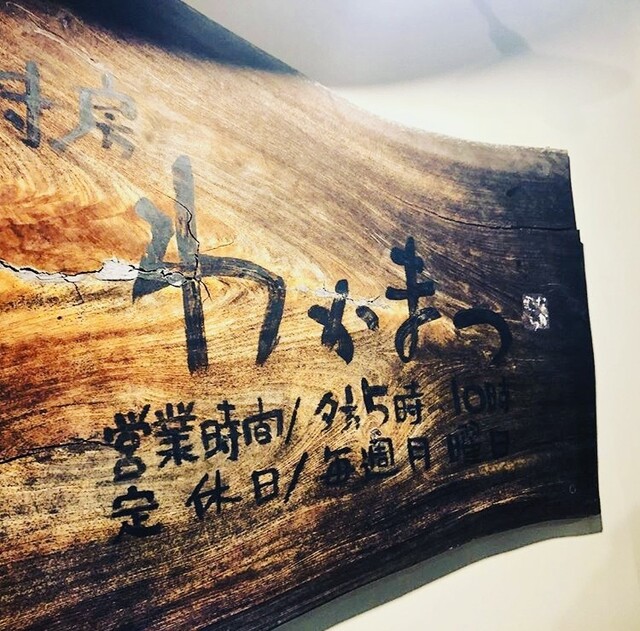 房
わかまつ
営業時間/夕 5時 10時
定休日/毎週月曜日